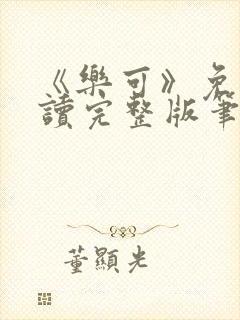 《樂可》免
讀完整版筆
董顯光